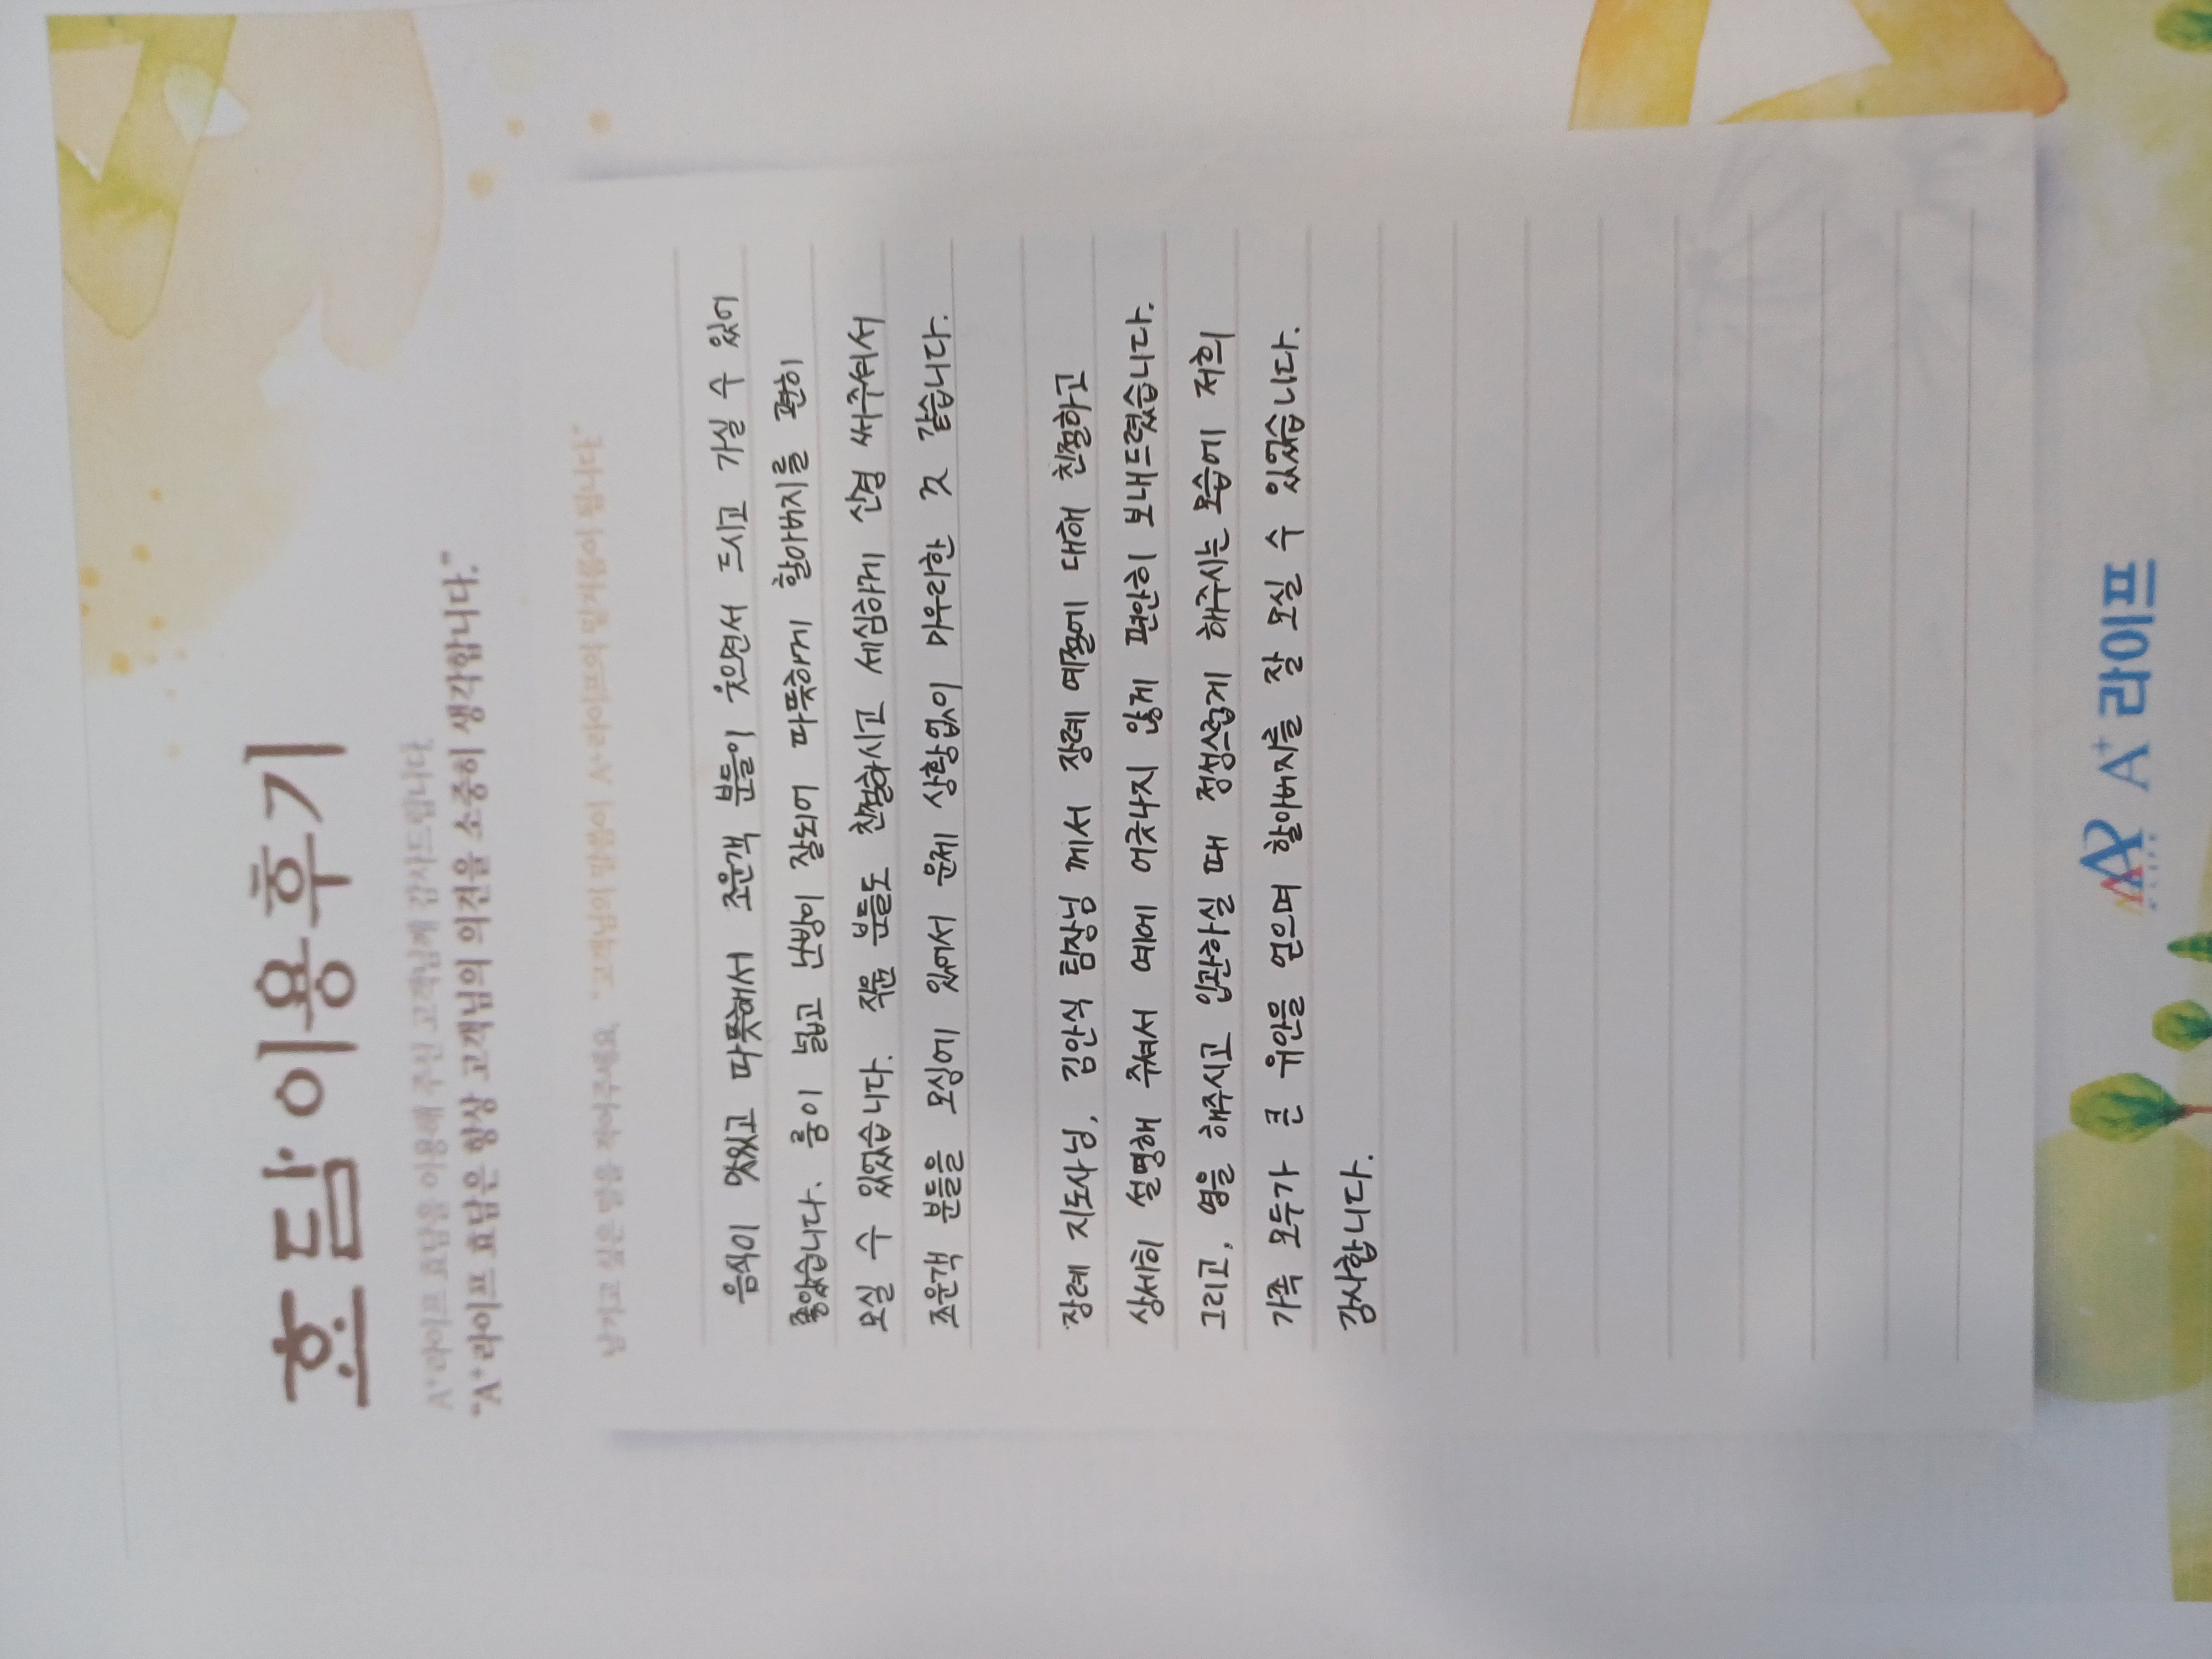 효담 이용후기
A+라이프 효담을 이용해 주신 고객님께 감사드립니다
"A+라이프 효담은 항상 고객님의 의견을 소중히 생각합니다."
남기고 싶은 말을 적어주세요. "고객님의 말씀이 A+라이프의 밑거름이 됩니다."
음식이 맛있고 따뜻해서 조문객 분들이 웃으면서 드시고 가실 수 있어
좋았습니다. 룸이 넓고 난방이 잘되어 따뜻하게 할아버지를 편히
모실 수 있었습니다. 직원 분들도 친절하시고 세심하게 신경 써주셔서
조문객 분들을 모심에 있어서 문제 상황없이 마무리한 것 같습니다.
장례 지도사님, 김안식 팀장님 께서 장례 예절에 대해 친절하고
상세히 설명해 주셔서 예에 어긋나지 않게 편안히 보내드렸습니다.
그리고, 염을 해주시고 입관하실 때 정성스럽게 해주시는 모습에 저희
가족 모두가 큰 위안을 얻으며 할아버지를 잘 모실 수 있었습니다.
감사합니다.
A+ 라이프